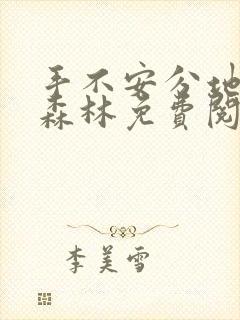 手不安分地
森林免费阅
李美雪